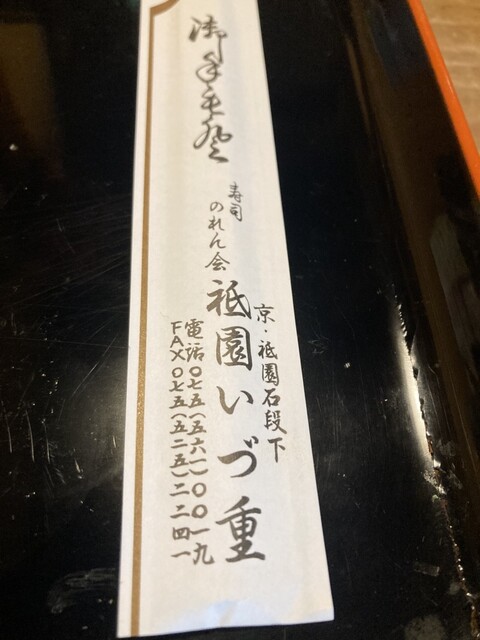 御手毛登
寿司
のれん会
京・祇園石段下
祇園いづ重
電話〇七五(五六一)〇〇一九
FAX〇七五(五二五)二二四一